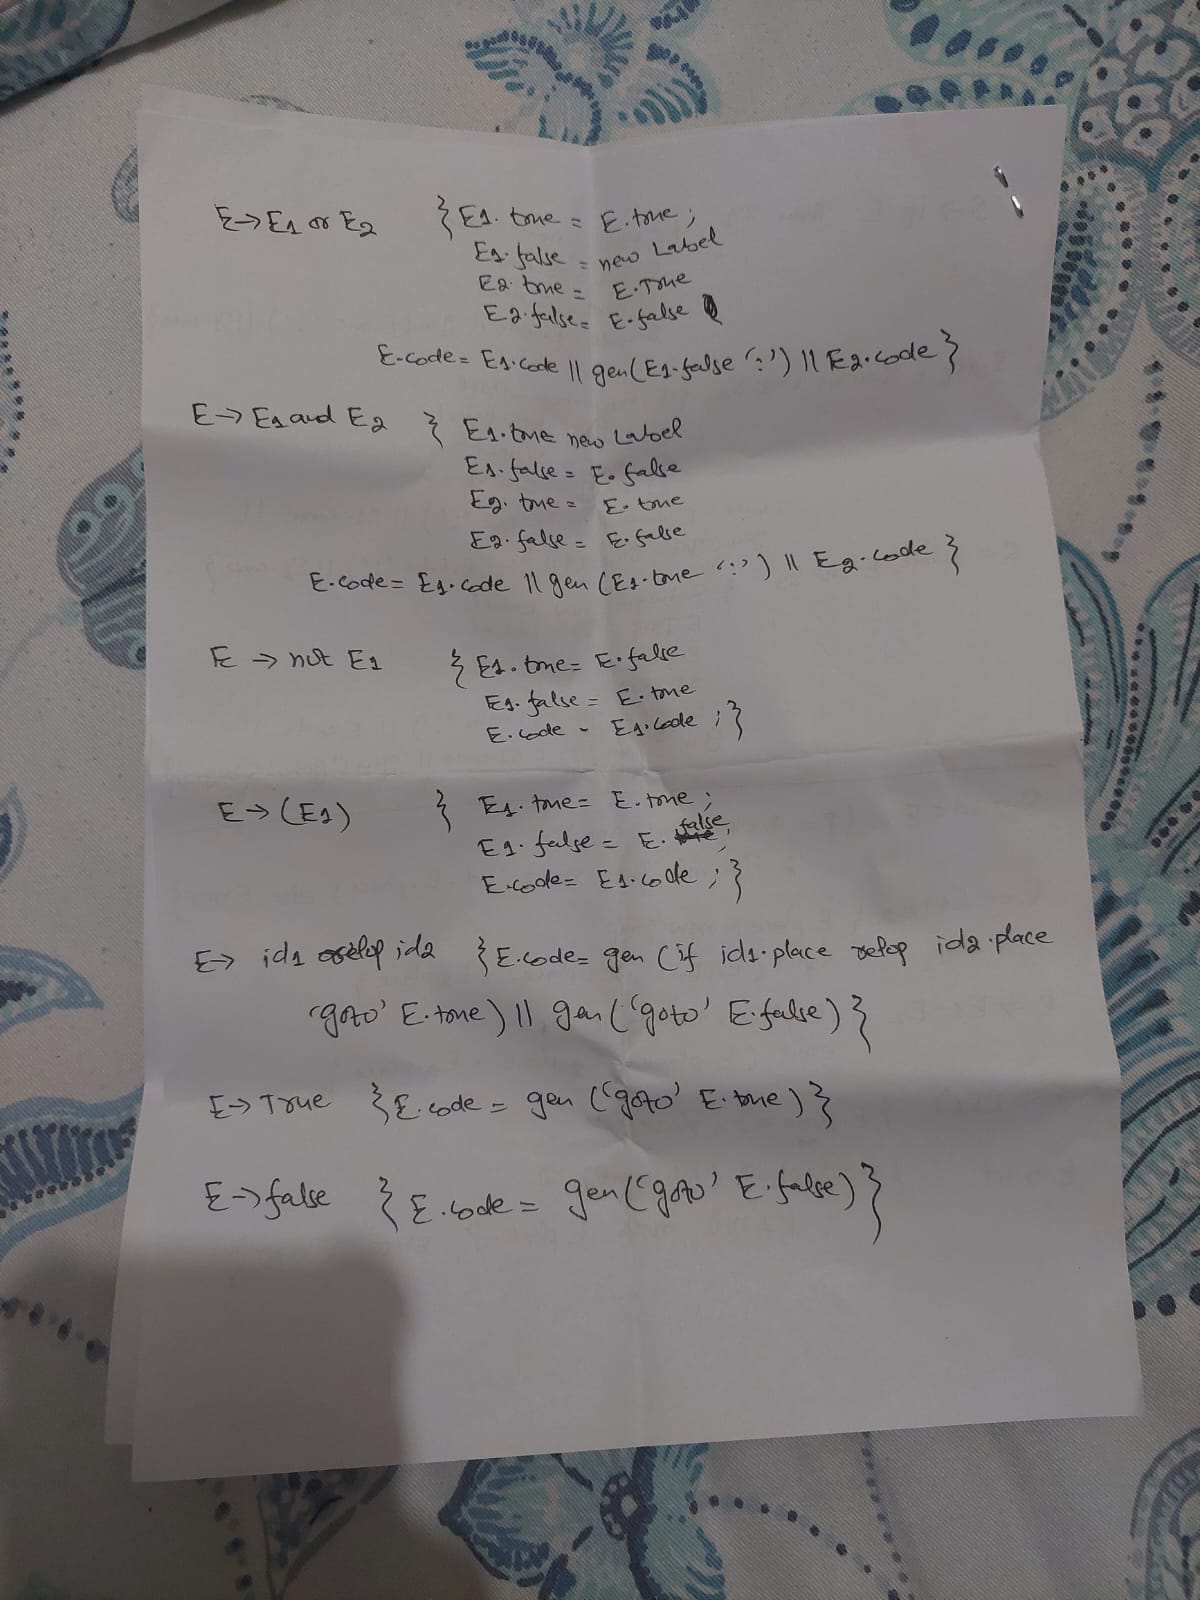 E → E1 or E2 { E1. true = E.true ;
E1.false = new Label
E2. true = E.True
E2.false = E.false
E.code = E1.code || gen(E1.false ':') || E2.code }
E → E1 and E2 { E1.true new Label
E1.false = E. false
E2. true = E. true
E2. false = E.false
E.code = E1.code || gen (E1.true ':') || E2.code }
E → not E1 { E1. true = E.false
E1. false = E. true
E. code = E1.code ; }
E → (E1) { E1. true = E. true ;
E1. false = E. false ;
E.code = E1.code ; }
E → id1 relop id2 { E.code = gen (if id1.place relop id2.place
'goto' E.true) || gen ('goto' E.false) }
E → True { E.code = gen ('goto' E.true) }
E → false { E.code = gen ('goto' E.false) }